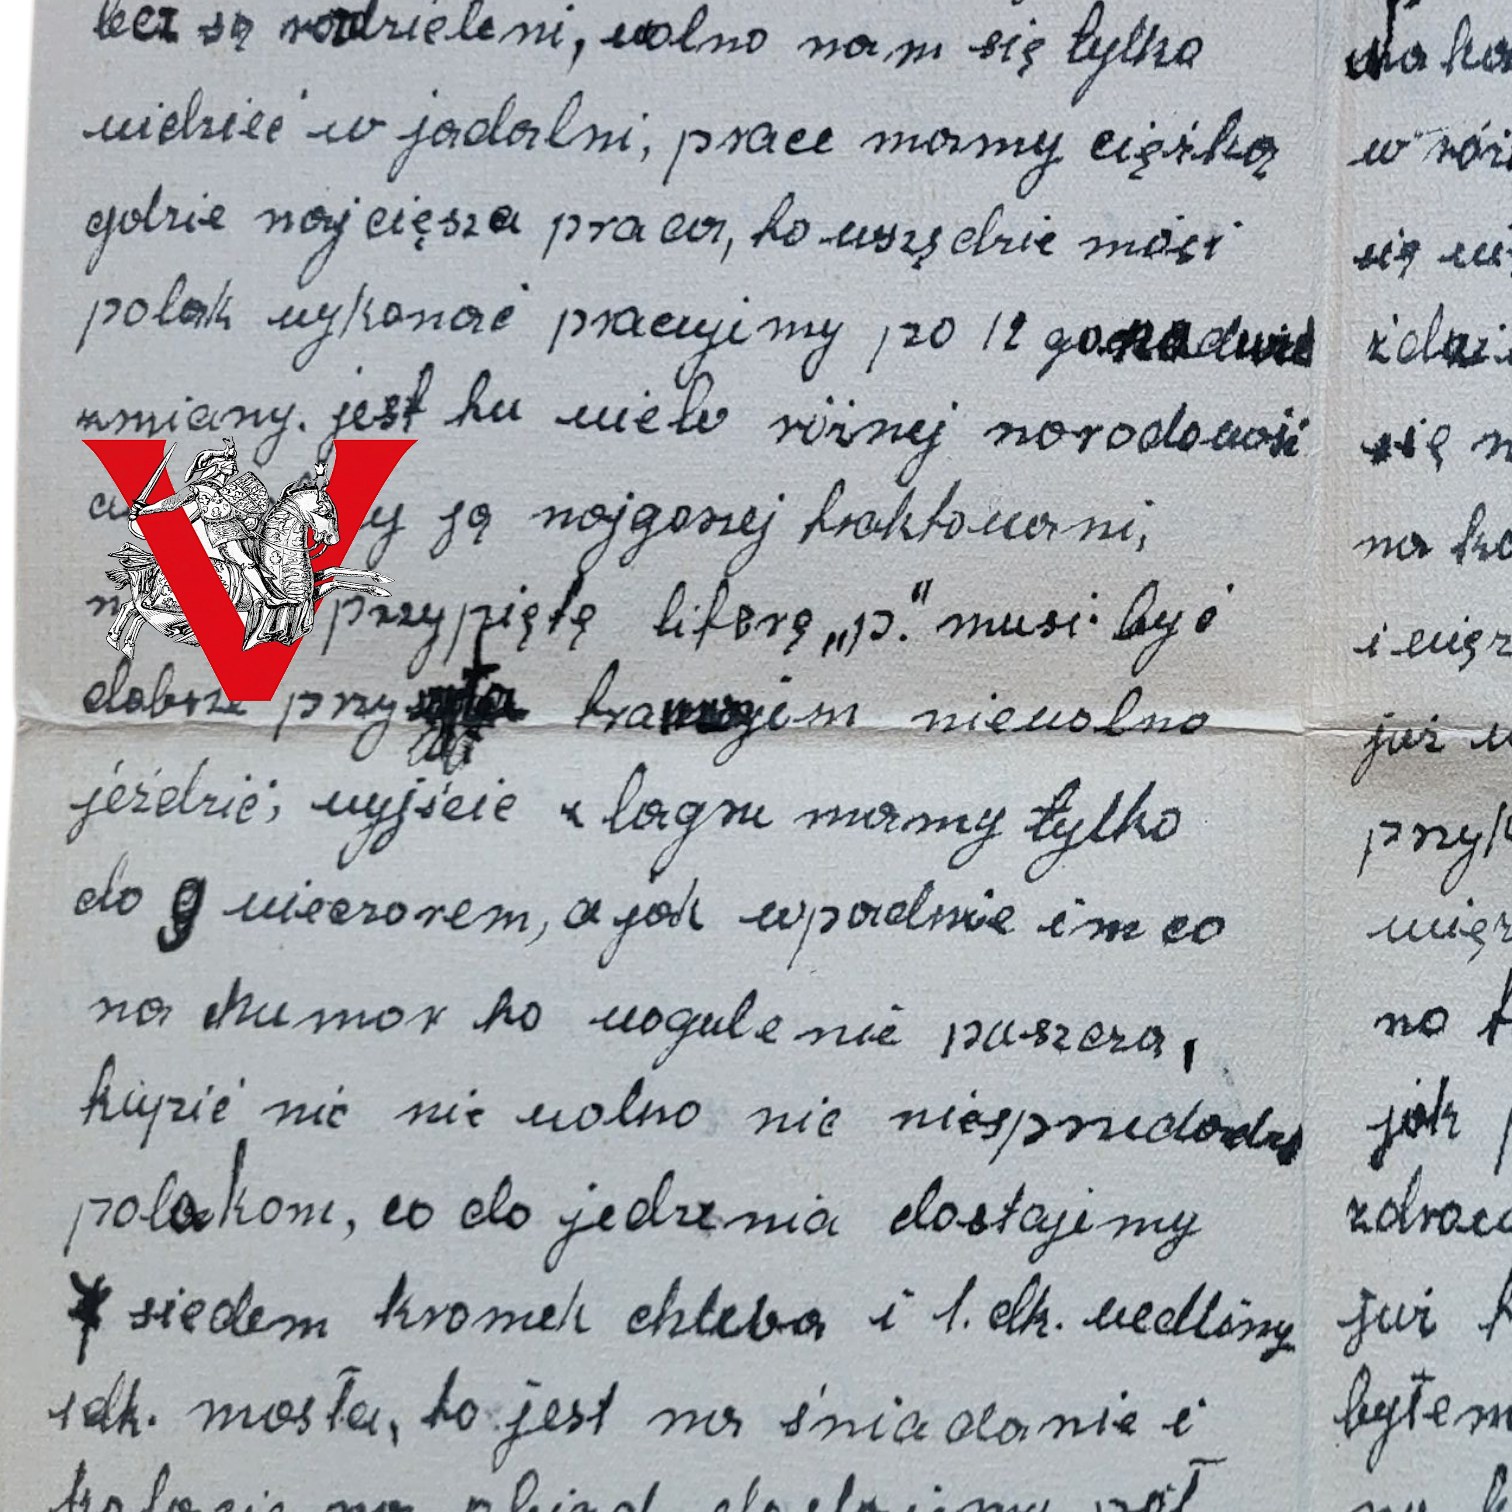 lecz są rozdzieleni, wolno nam się tylko
widzieć w jadalni, prace mamy ciężką
gdzie najcięsza praca, to wszędzie musi
polak wykonać pracujimy po 12 go na dwie
zmiany. jest tu wielu różnej norodowości
są najgorzej traktowani,
przypiętę literę „p." musi być
dobrze tramwajem niewolno
jeździć, wyjście z lagru mamy tylko
do 9 wieczorem, a jak wpadnie im co
na chumor to wogule nie puszcza,
kupić nic nie wolno nic niesprzedadzą
polakom, co do jedzenia dostajemy
siedem kromek chleba i 1. dk. wedliny
1dk. masła, to jest na śniadanie i
kolacje na obiad dostajemy pół
na
w
się
się
na
i
już
na
jak
już
byłem